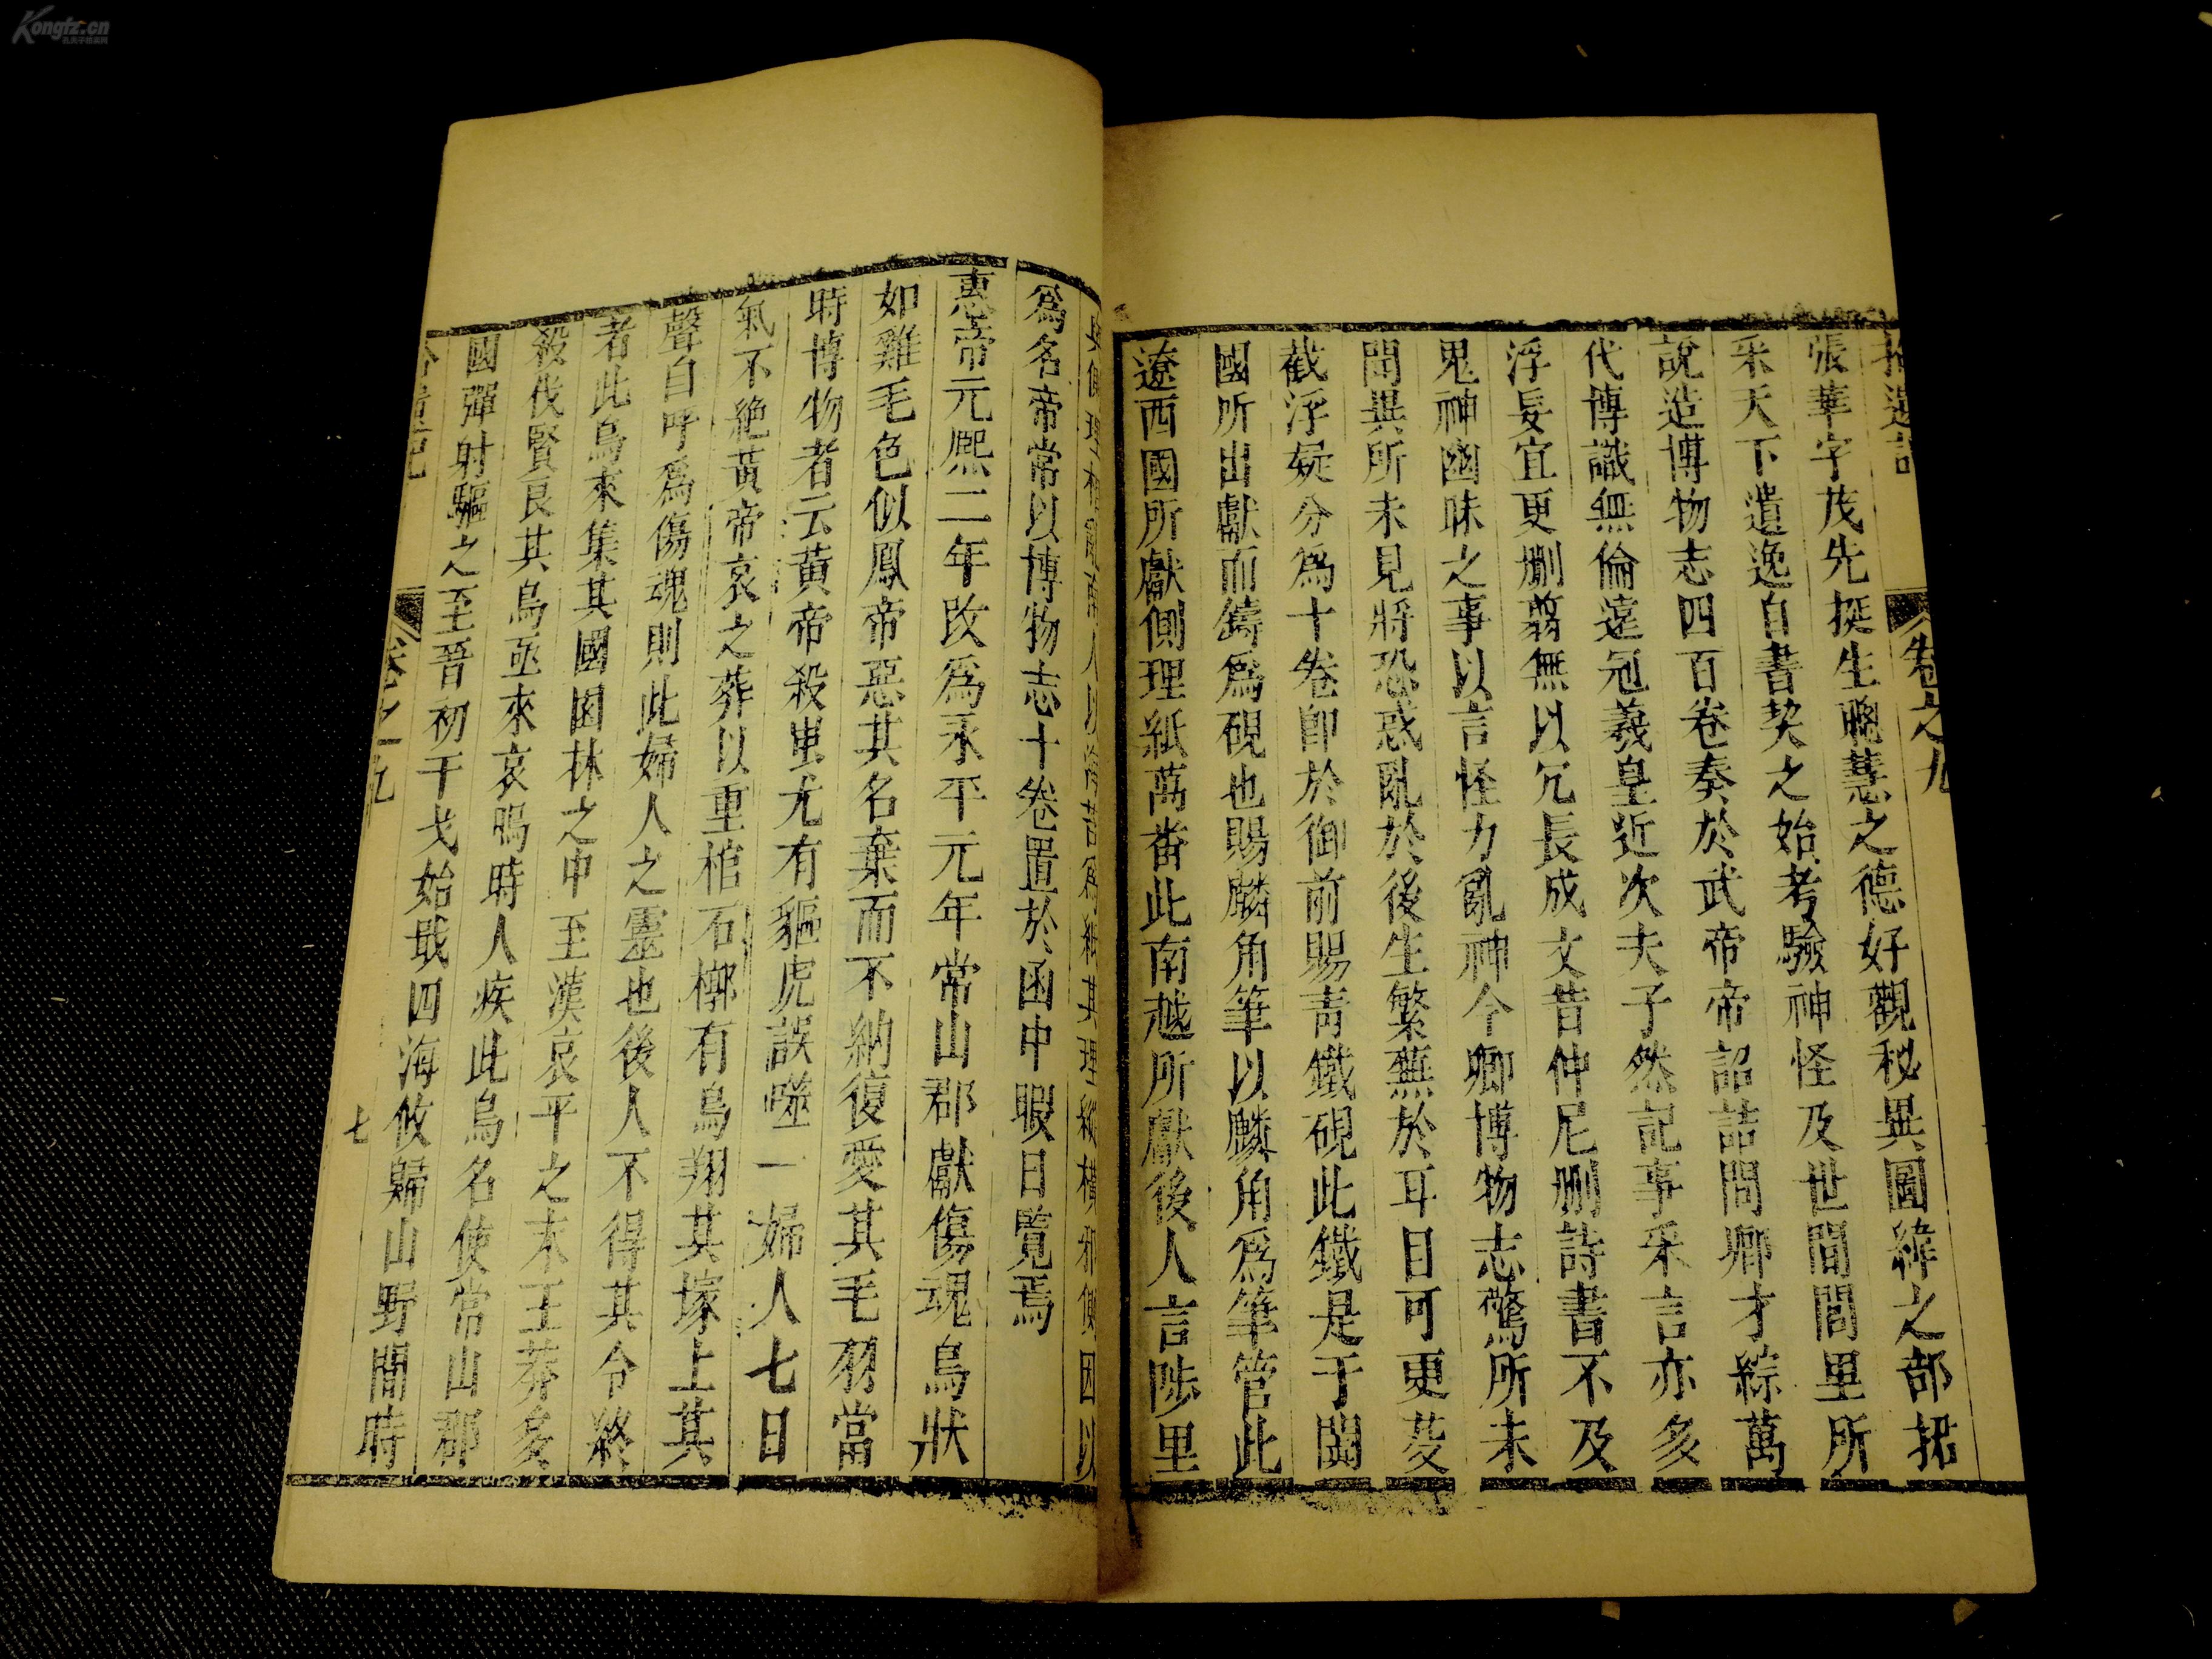 張華字茂先挺生聰慧之德好觀秘異圖緯之部捃
采天下遺逸自書契之始考驗神怪及世間閭里所
說造博物志四百卷奏於武帝帝詔詰問卿才綜萬
代博識無倫遠冠羲皇近次夫子然記事采言亦多
浮妄宜更刪翦無以冗長成文昔仲尼刪詩書不及
鬼神幽昧之事以言怪力亂神今卿博物志驚所未
聞異所未見將恐惑亂於後生繁蕪於耳目可更芟
截浮疑分為十卷即於御前賜青鐵硯此鐵是于闐
國所出獻而鑄為硯也賜麟角筆以麟角為筆管此
遼西國所獻側理紙萬番此南越所獻後人言陟里
與側理相 人以海苔為紙其理縱橫邪側因以
為名帝常以博物志十卷置於函中暇日覽焉
惠帝元熙二年改為永平元年常山郡獻傷魂鳥狀
如雞毛色似鳳帝惡其名棄而不納復愛其毛羽當
時博物者云黃帝殺蚩尤有貙虎誤噬一婦人七日
氣不絕黃帝哀之葬以重棺石槨有鳥翔其塚上其
聲自呼為傷魂則此婦人之靈也後人不得其令終
者此鳥來集其國園林之中至漢哀平之末王莽多
殺伐賢良其鳥亟來哀鳴時人疾此鳥名使常山郡
國彈射驅之至晉初干戈始戢四海攸歸山野間時
卷之九
七
拾遺記
卷之九
Kongfz.cn